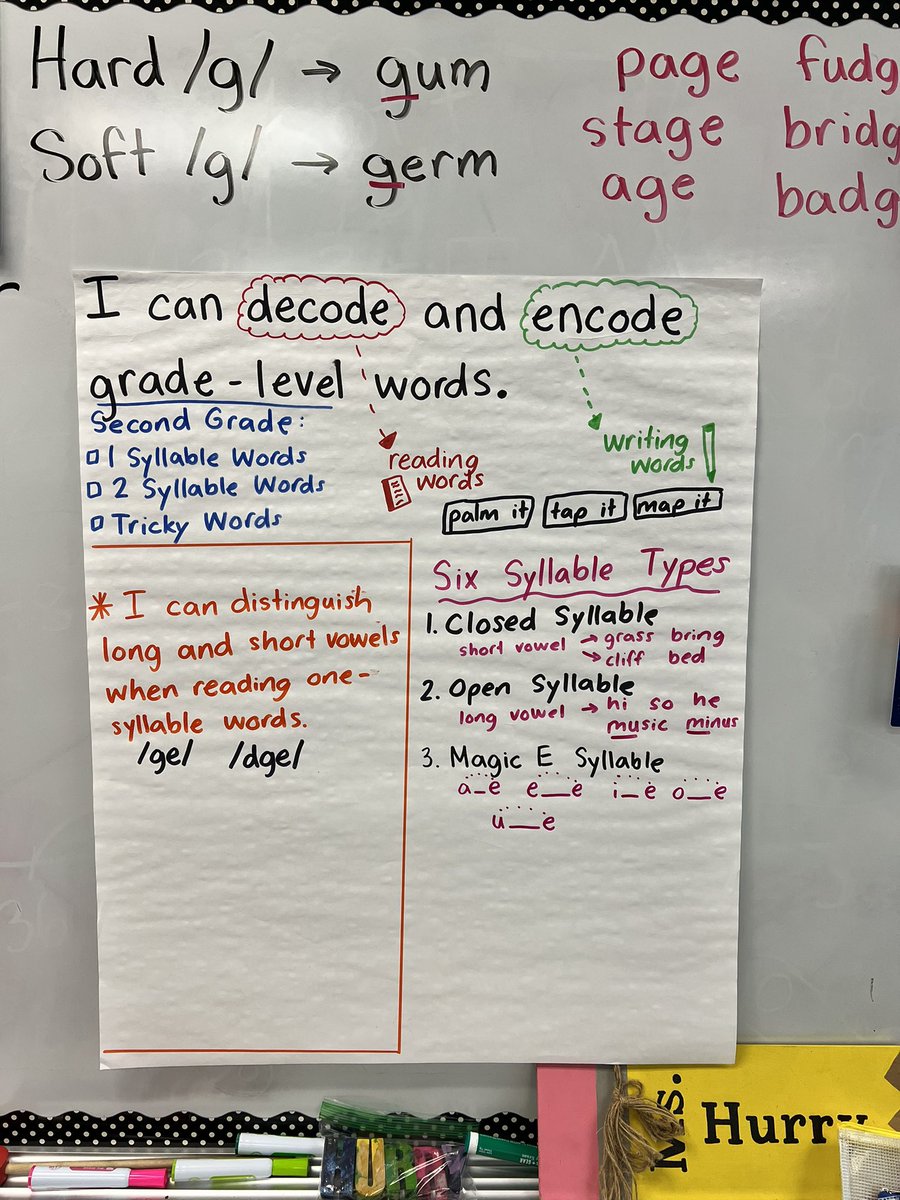 Hard /g/ → gum
Soft /g/ → germ
page fudg
stage bridg
age badg
I can decode and encode
grade-level words.
Second Grade:
1 Syllable Words
2 Syllable Words
Tricky Words
reading
words
writing
words
palm it tap it map it
* I can distinguish
long and short vowels
when reading one-
syllable words.
/ge/ /dge/
Six Syllable Types
1. Closed Syllable
short vowel → grass bring
→ cliff bed
2. Open Syllable
long vowel → hi so he
music minus
3. Magic E Syllable
a_e e_e i_e o_e
u_e
Ms. Hurry